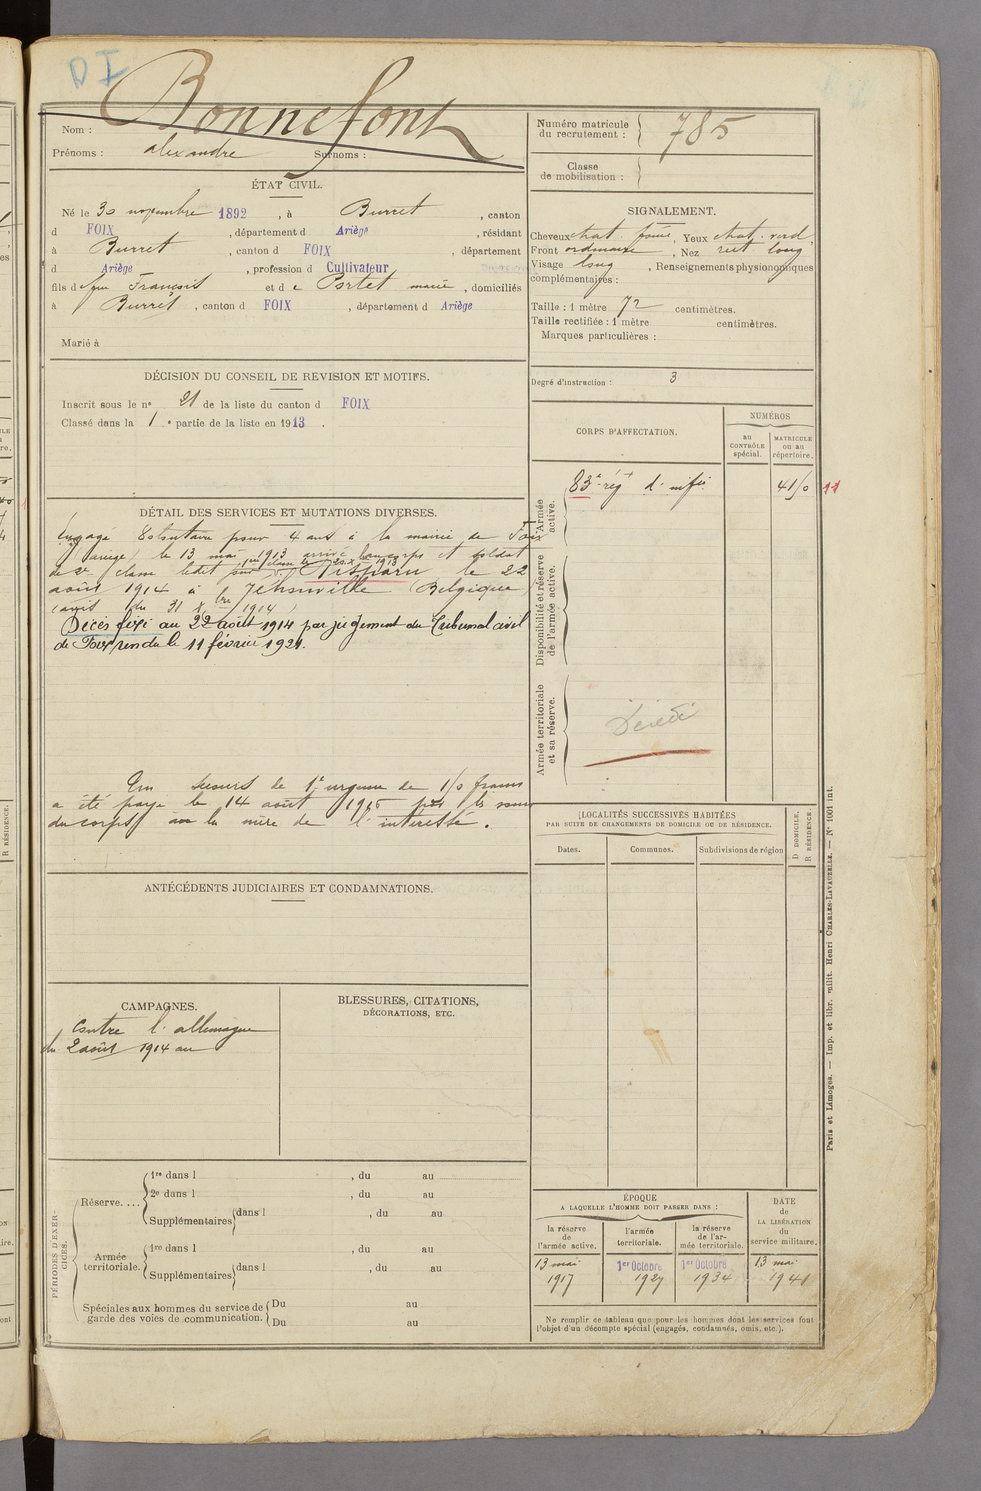 DI
Bonnefont
Nom :
Prénoms : alexandre Surnoms :
Numéro matricule
du recrutement : 785
Classe
de mobilisation :
ÉTAT CIVIL.
Né le 30 novembre 1892, à Burret, canton
d FOIX, département d Ariège, résidant
à Burret, canton d FOIX, département
d Ariège, profession d Cultivateur
fils de feu François et de Portet marie, domiciliés
à Burret, canton d FOIX, département d Ariège
Marié à
SIGNALEMENT.
Cheveux chat. foncé, Yeux chat. verd
Front ordinaire, Nez rect long
Visage long, Renseignements physionomiques
complémentaires :
Taille : 1 mètre 72 centimètres.
Taille rectifiée : 1 mètre centimètres.
Marques particulières :
Degré d'instruction : 3
DÉCISION DU CONSEIL DE REVISION ET MOTIFS.
Inscrit sous le n° 21 de la liste du canton d FOIX
Classé dans la 1e partie de la liste en 1913.
CORPS D'AFFECTATION.
NUMÉROS
au
CONTRÔLE
spécial.
MATRICULE
ou au
répertoire.
Armée
active.
83e rég d'infie 4150 11
Disponibilité et réserve
de l'armée active.
Armée territoriale
et sa réserve.
Décédé
DÉTAIL DES SERVICES ET MUTATIONS DIVERSES.
Engagé Volontaire pour 4 ans à la mairie de Foix
(ariège) le 13 mai 1913 arrivé au corps et soldat
de 2e classe ledit jour. Disparu le 22
août 1914 à Jehonville (Belgique)
(avis du 31 Xbre 1914)
Décès fixé au 22 août 1914 par jugement du Tribunal civil
de Foix rendu le 11 février 1921.
Un secours de 1e urgence de 150 francs
a été payé le 14 août 1915 par les soins
du corps à la mère de l'intéressé.
LOCALITÉS SUCCESSIVES HABITÉES
PAR SUITE DE CHANGEMENTS DE DOMICILE OU DE RÉSIDENCE.
Dates.
Communes.
Subdivisions de région
D DOMICILE.
R RÉSIDENCE.
ANTÉCÉDENTS JUDICIAIRES ET CONDAMNATIONS.
CAMPAGNES.
Contre l'allemagne
du 2 août 1914 au
BLESSURES, CITATIONS,
DÉCORATIONS, ETC.
PÉRIODES D'EXERCICES.
Réserve....
1re dans l , du au
2e dans l , du au
Supplémentaires dans l , du au
Armée
territoriale.
1re dans l , du au
Supplémentaires dans l , du au
Spéciales aux hommes du service de
garde des voies de communication.
Du au
Du au
ÉPOQUE
A LAQUELLE L'HOMME DOIT PASSER DANS :
la réserve
de
l'armée active.
l'armée
territoriale.
la réserve
de l'ar-
mée territoriale.
DATE
de
LA LIBÉRATION
du
service militaire.
13 mai 1er Octobre 1er Octobre 13 mai
1917 1927 1934 1941
Ne remplir ce tableau que pour les hommes dont les services font
l'objet d'un décompte spécial (engagés, condamnés, omis, etc.).
Paris et Limoges. — Imp. et libr. milit. Henri CHARLES-LAVAUZELLE. — N° 1001 int.